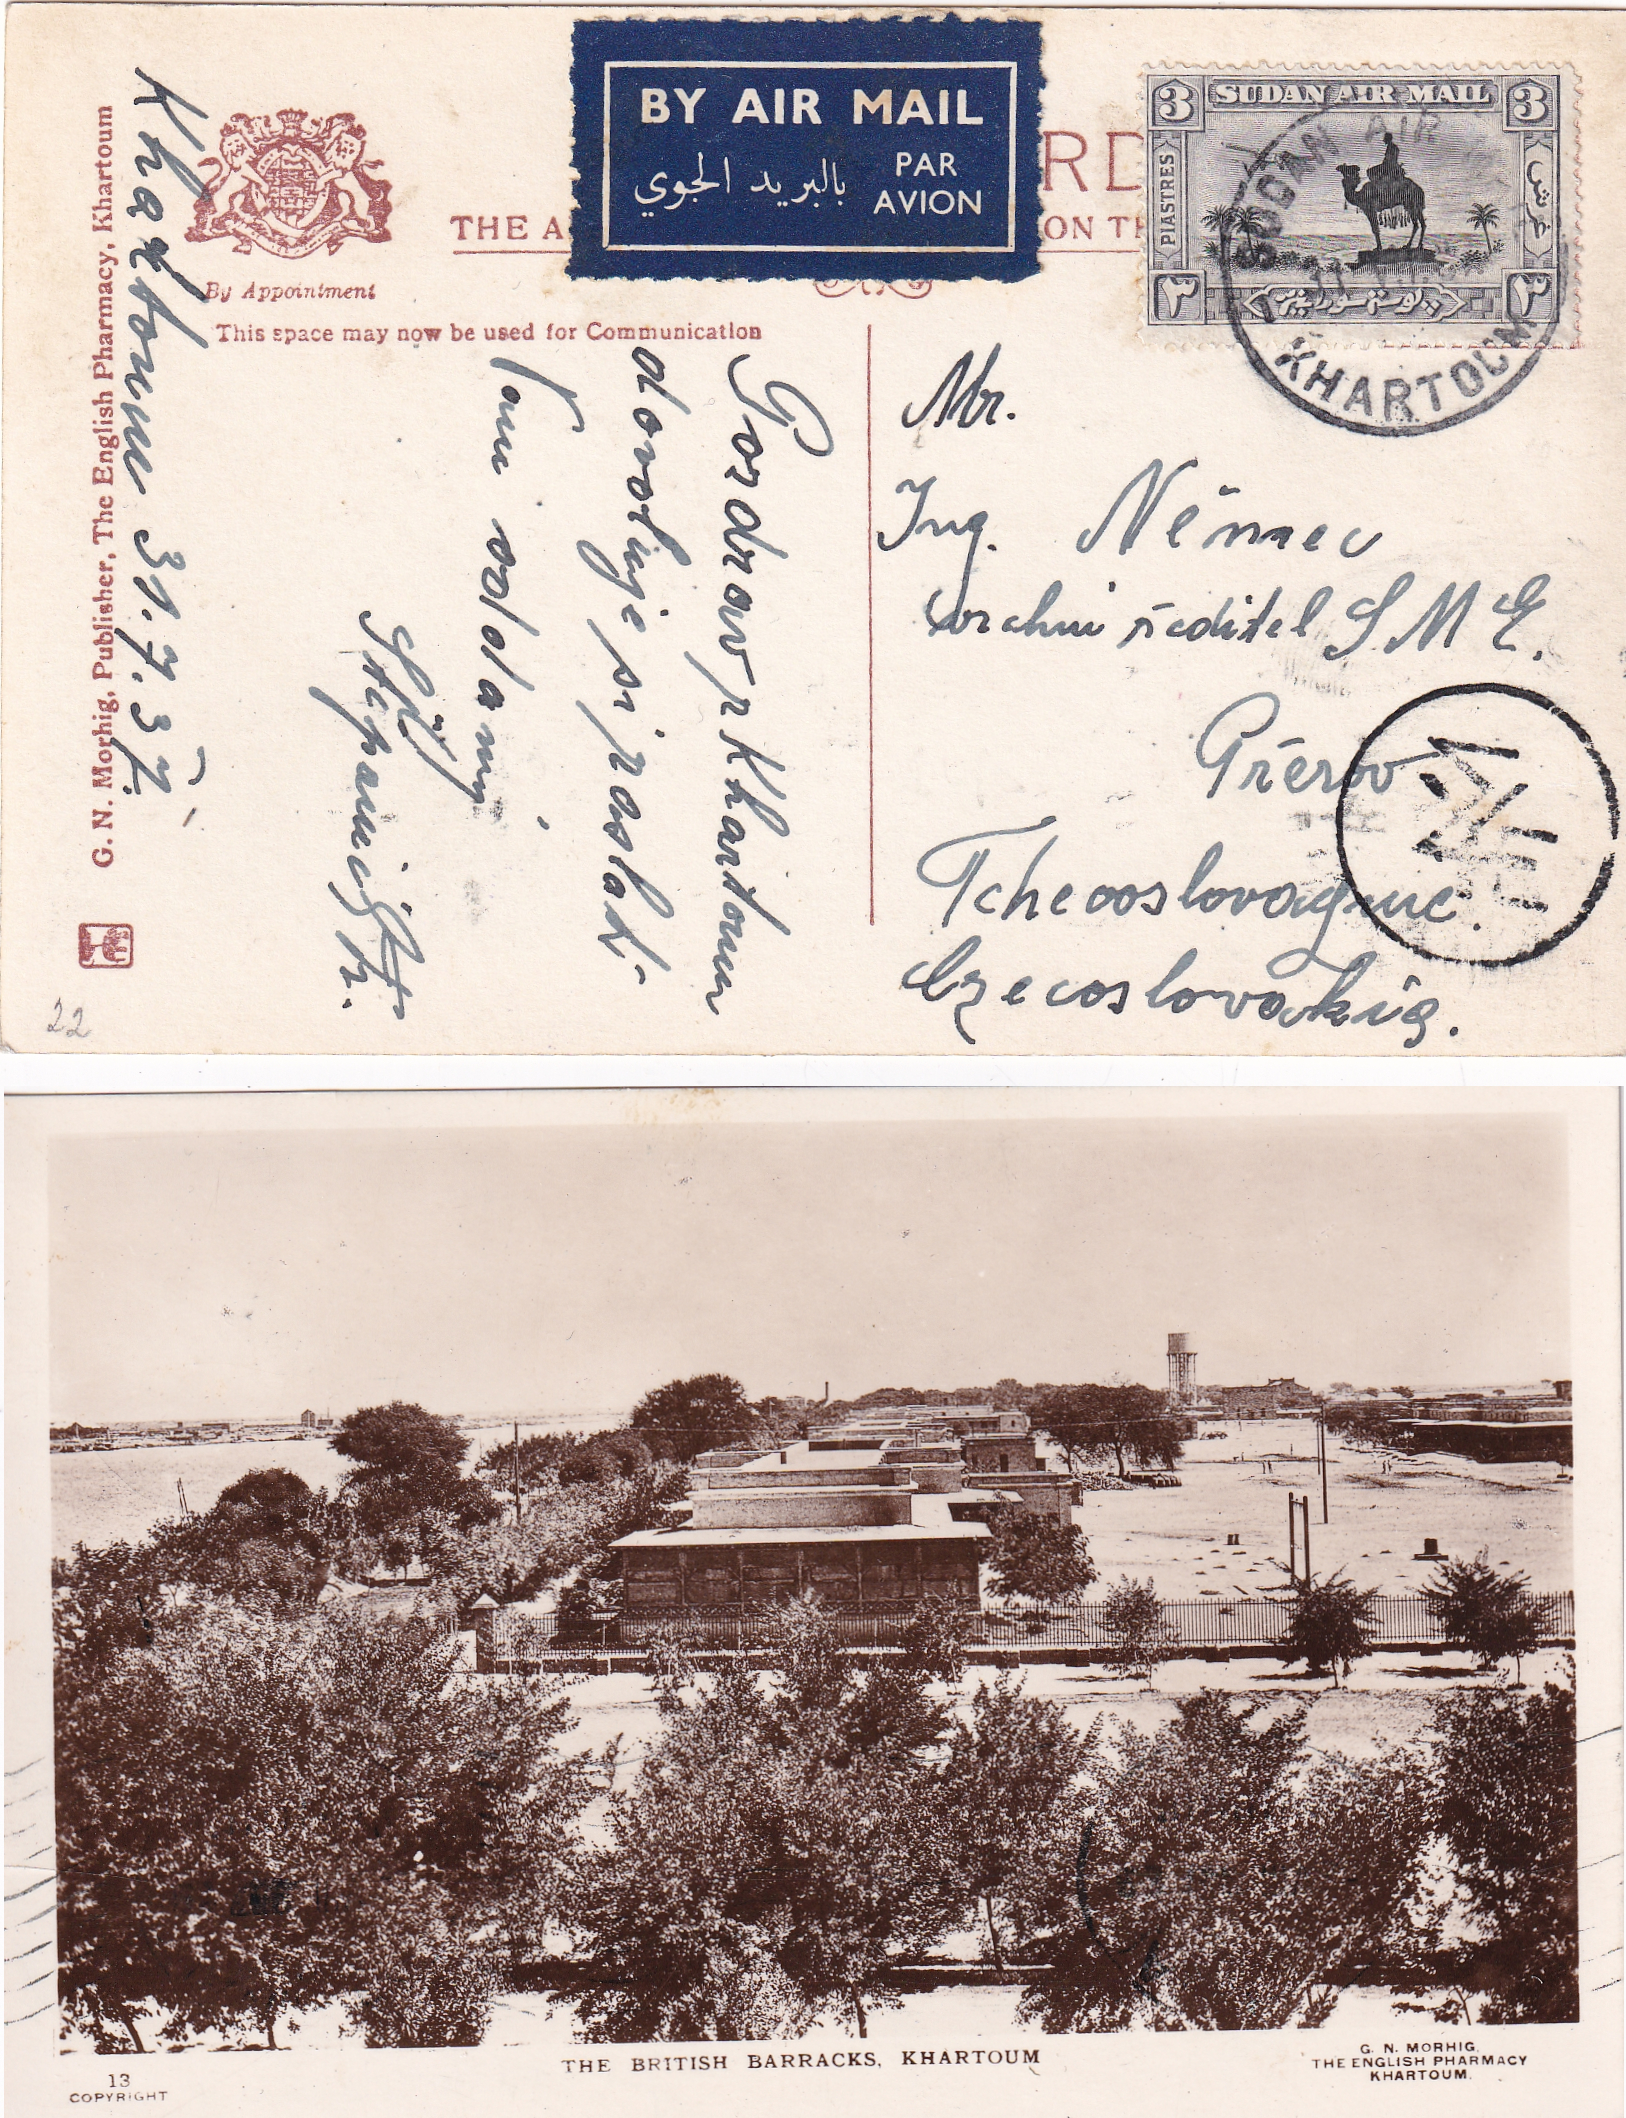 BY AIR MAIL
بالبريد الجوي
PAR
AVION
RD
THE A
ON TH
By Appointment
This space may now be used for Communication
G. N. Morhig, Publisher, The English Pharmacy, Khartoum
3 SUDAN AIR MAIL 3
PIASTRES
غرش
٣ ٣
SUDAN AIR
KHARTOUM
Khartoum 31.7.37.
Pozdrav z Khartoum
dovoluje si zaslati
Vám oddaný
Mr.
Ing. Němec
vrchní ředitel S M E.
Přerov
Tchecoslovaque.
Czecoslovakia.
22
THE BRITISH BARRACKS, KHARTOUM
13
COPYRIGHT
G. N. MORHIG,
THE ENGLISH PHARMACY
KHARTOUM.